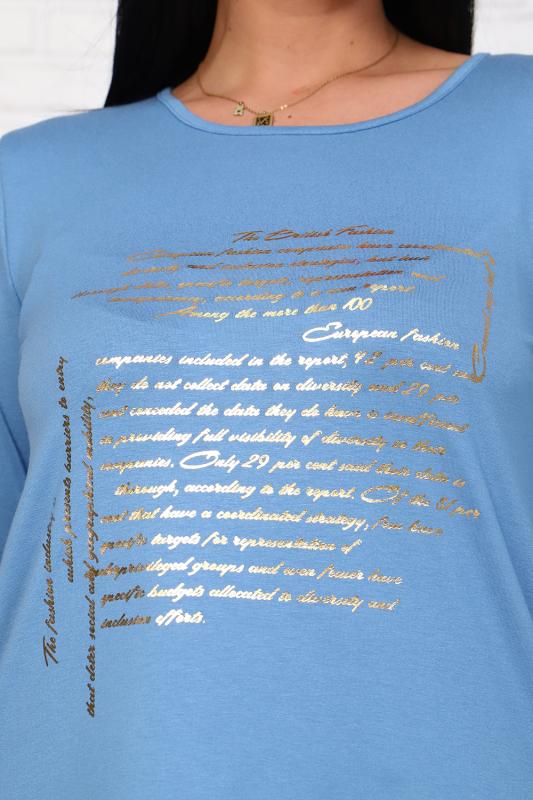 The British Fashion
European fashion companies have coordinated
diversity and inclusion strategies, but lack
enough data, concrete targets, representation and
transparency, according to a new report
Among the more than 100
European fashion
companies included in the report, 42 per cent said
they do not collect data on diversity and 29 per
cent conceded the data they do have is insufficient
in providing full visibility of diversity in their
companies. Only 29 per cent said their data is
thorough, according to the report. Of the 51 per
cent that have a coordinated strategy, few have
specific targets for representation of
underprivileged groups and even fewer have
specific budgets allocated to diversity and
inclusion efforts.
The fashion industry
which presents barriers to entry
that deter social and geographical mobility,